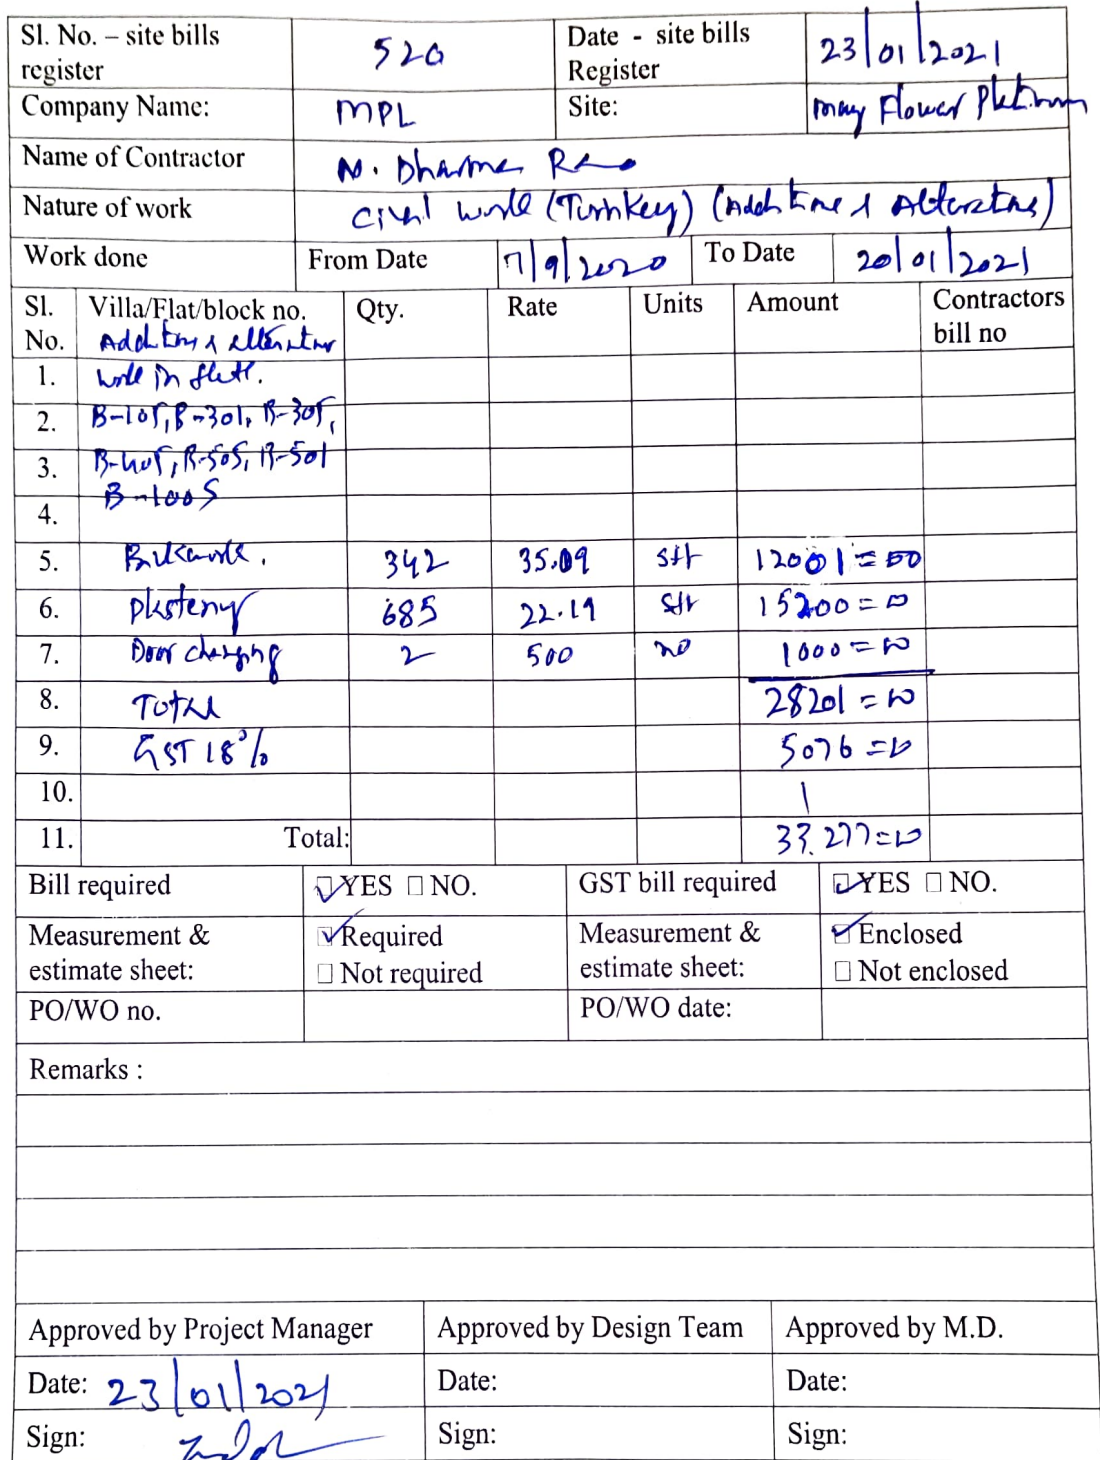 Sl. No. – site bills register 520 Date - site bills Register 23/01/2021
Company Name: MPL Site: May Flower Platinum
Name of Contractor N. Dharma Rao
Nature of work Civil work (Turnkey) (Additions & Alterations)
Work done From Date 7/9/2020 To Date 20/01/2021
Sl. No. Villa/Flat/block no. Qty. Rate Units Amount Contractors bill no
Additions & alterations
1. work in flats.
2. B-105, B-301, B-305,
3. B-405, B-505, B-501
B-1005
4.
5. Brickwork. 342 35.09 sft 12001=00
6. plastering 685 22.19 sft 15200=00
7. Door changing 2 500 no 1000=00
8. Total 28201=00
9. GST 18% 5076=00
10.
11. Total: 33.277=00
Bill required ☑ YES □ NO. GST bill required ☑ YES □ NO.
Measurement & estimate sheet: ☑ Required □ Not required Measurement & estimate sheet: ☑ Enclosed □ Not enclosed
PO/WO no. PO/WO date:
Remarks :
Approved by Project Manager Approved by Design Team Approved by M.D.
Date: 23/01/2021 Date: Date:
Sign: Sign: Sign: